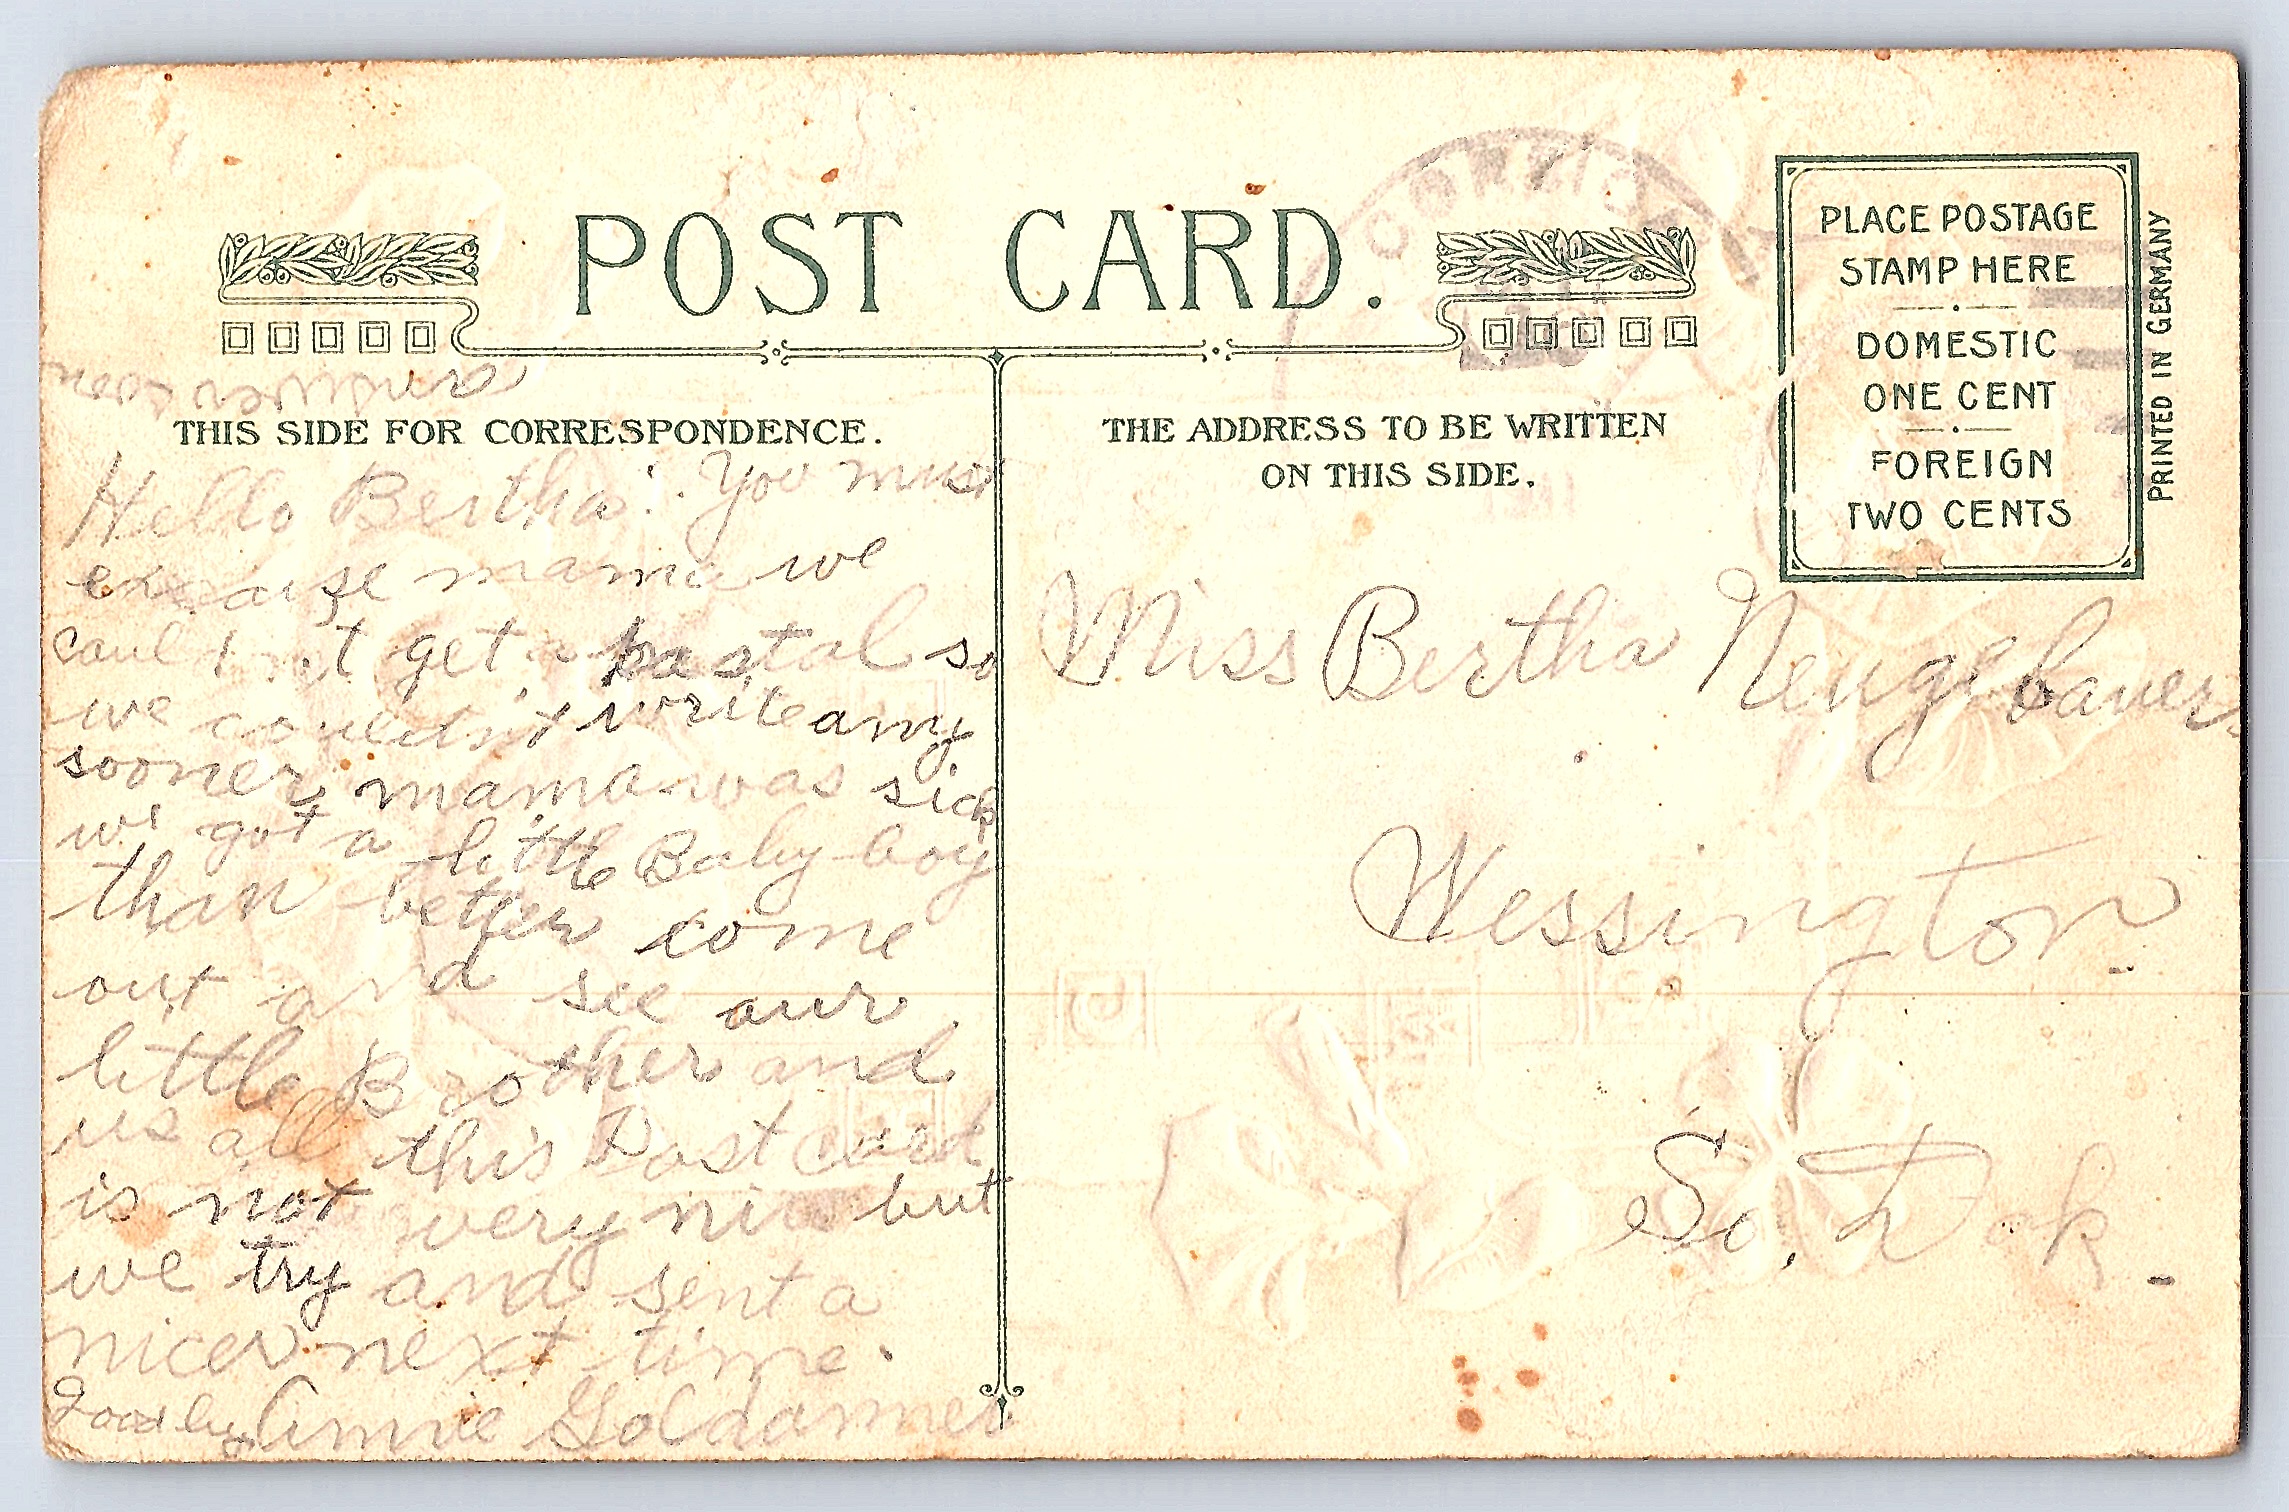 POST CARD.
THIS SIDE FOR CORRESPONDENCE.
THE ADDRESS TO BE WRITTEN
ON THIS SIDE.
PLACE POSTAGE
STAMP HERE
DOMESTIC
ONE CENT
FOREIGN
TWO CENTS
PRINTED IN GERMANY
Hello Bertha! You must
excause mama we
could not get a postal so
we couldn't write amy
sooner mama was sick
we got a little Baby boy
than better come
out and see aur
little Brother and
us all this Post card
is not very nice but
we try and sent a
nicer next time.
Goodby Annie Goldammer
Miss Bertha Neugebauer
Wessington
So. Dak